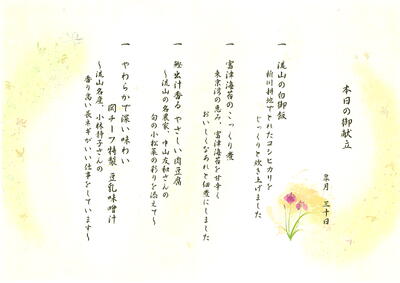 本日の御献立
皐月 三十日
一 流山の白御飯
新川耕地でとれたコシヒカリを
じっくりと炊き上げました
一 富津海苔のこっくり煮
東京湾の恵み、富津海苔を甘辛く
おいしくなあれと佃煮にしました
一 鰹出汁香る やさしい肉豆腐
〜流山の名農家、中山友和さんの
旬の小松菜の彩りを添えて〜
一 やわらかで深い味わい
岡チーフ特製 豆乳味噌汁
〜流山名産、小林静子さんの
香り高い長ネギがいい仕事をしています〜